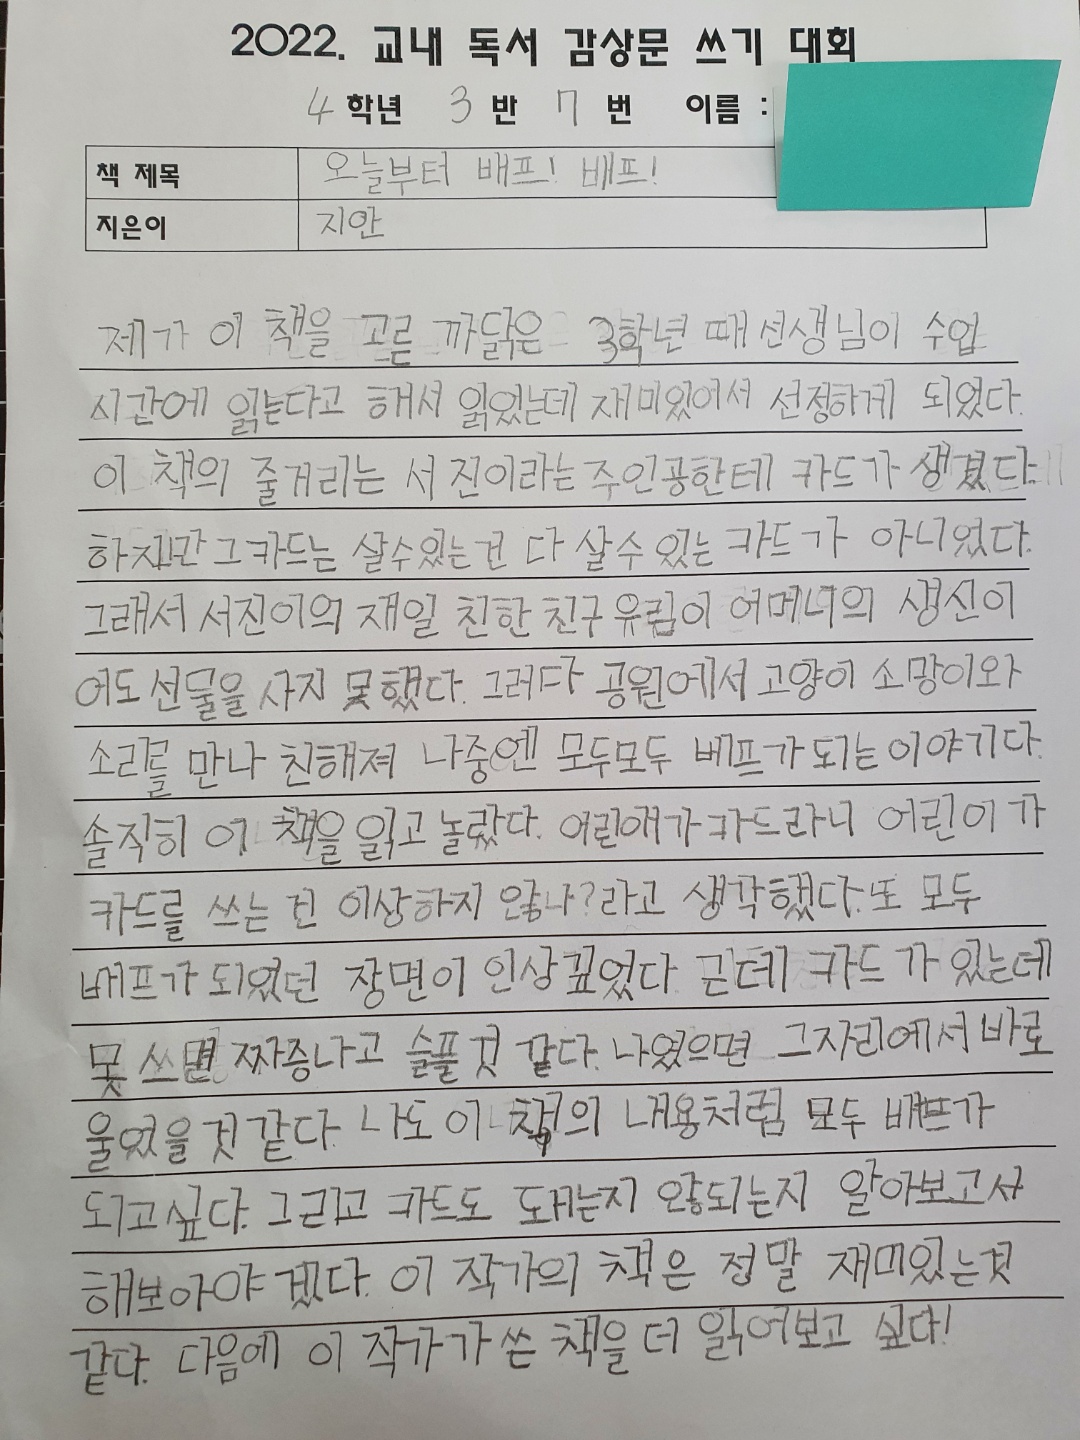 2022. 교내 독서 감상문 쓰기 대회
4 학년 3 반 7 번 이름 :
책 제목 오늘부터 배프! 베프!
지은이 지안
제가 이 책을 고른 까닭은 3학년 때 선생님이 수업
시간에 읽는다고 해서 읽었는데 재미있어서 선정하게 되었다.
이 책의 줄거리는 서진이라는 주인공한테 카드가 생겼다.
하지만 그 카드는 살수있는건 다 살수 있는 카드가 아니었다.
그래서 서진이의 재일 친한 친구 유림이 어머니의 생신이
어도 선물을 사지 못했다. 그러다 공원에서 고양이 소망이와
소리를 만나 친해져 나중엔 모두모두 베프가 되는 이야기다.
솔직히 이 책을 읽고 놀랐다. 어린애가 카드라니 어린이가
카드를 쓰는 건 이상하지 않나? 라고 생각했다. 또 모두
베프가 되었던 장면이 인상 깊었다. 근데 카드가 있는데
못 쓰면 짜증나고 슬플것 같다. 나였으면 그자리에서 바로
울었을것 같다. 나도 이 책의 내용처럼 모두 베프가
되고싶다. 그리고 카드도 되는지 않되는지 알아보고서
해보아야 겠다. 이 작가의 책은 정말 재미있는것
같다. 다음에 이 작가가 쓴 책을 더 읽어보고 싶다!